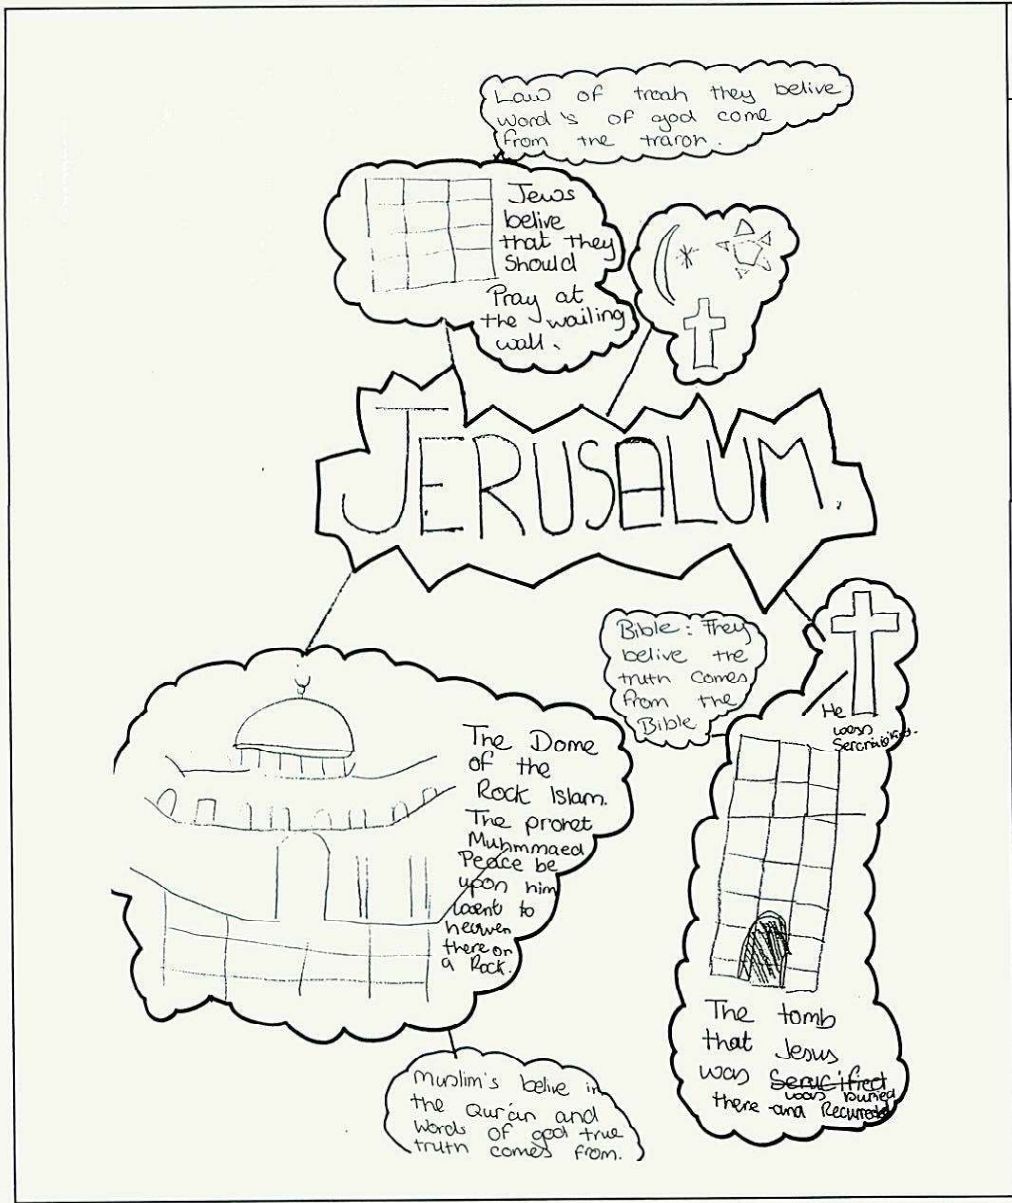 Law of troah they belive
word's of god come
from the traroh.
Jews
belive
that they
Should
Pray at
the wailing
wall.
JERUSALUM.
Bible: They
belive the
truth comes
from the
Bible
He
was
The Dome
of the
Rock Islam.
The prohet
Muhmmaed
Peace be
upon him
went to
heaven
there on
a Rock.
The tomb
that Jesus
was Serucified
was buried
there and
Muslim's belive in
the Qur'an and
words of god true
truth comes from.